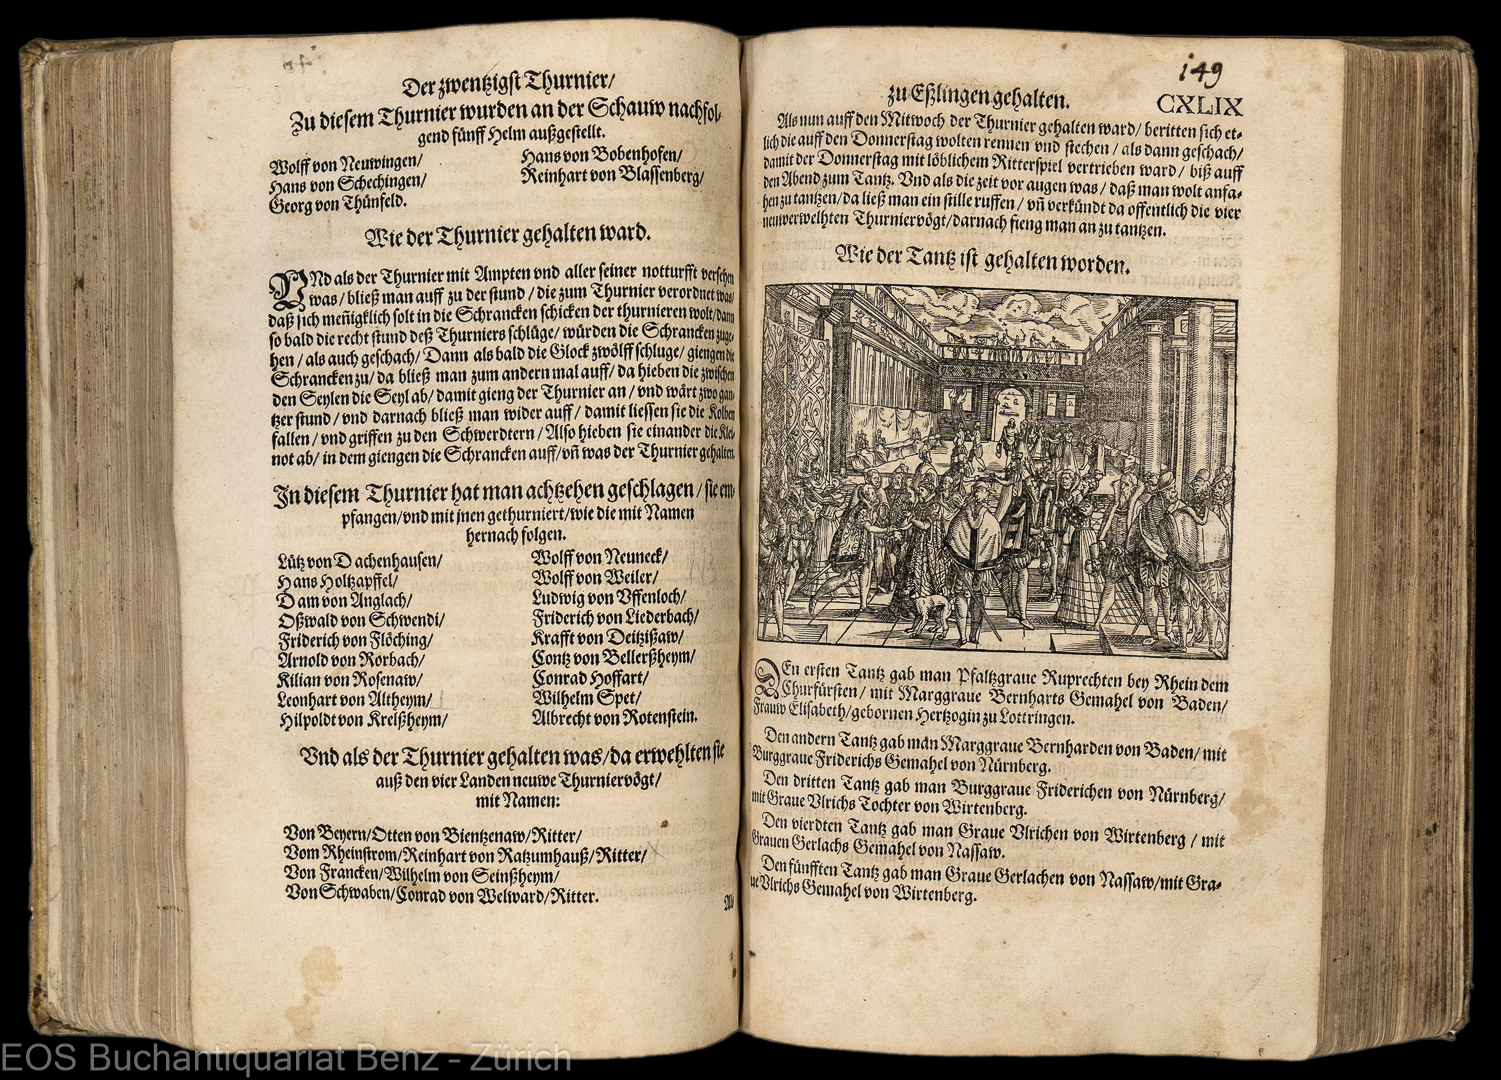 Der zwentzigst Thurnier/
Zu diesem Thurnier wurden an der Schauw nachfol-
gend fünff Helm außgestellt.
Wolff von Neuwingen/
Hans von Schechingen/
Georg von Thünfeld.
Hans von Bobenhofen/
Reinhart von Blassenberg/
Wie der Thurnier gehalten ward.
VNd als der Thurnier mit Ampten vnd aller seiner notturfft versehen
was/ bließ man auff zu der stund / die zum Thurnier verordnet was/
daß sich meñigklich solt in die Schrancken schicken der thurnieren wolt/ dann
so bald die recht stund deß Thurniers schlüge/ würden die Schrancken zuge-
hen / als auch geschach/ Dann als bald die Glock zwölff schluge/ giengen die
Schrancken zu/ da bließ man zum andern mal auff/ da hieben die zwischen
den Seylen die Seyl ab/ damit gieng der Thurnier an / vnd wärt zwo gan-
tzer stund / vnd darnach bließ man wider auff / damit liessen sie die Kolben
fallen / vnd griffen zu den Schwerdtern / Also hieben sie einander die Klei-
not ab/ in dem giengen die Schrancken auff/ vñ was der Thurnier gehalten.
In diesem Thurnier hat man achtzehen geschlagen / sie em-
pfangen/ vnd mit jnen gethurniert/ wie die mit Namen
hernach folgen.
Lütz von Dachenhausen/
Hans Holtzapffel/
Dam von Anglach/
Oßwald von Schwendi/
Friderich von Flöching/
Arnold von Rorbach/
Kilian von Rosenaw/
Leonhart von Altheym/
Hilpoldt von Kreißheym/
Wolff von Neuneck/
Wolff von Weiler/
Ludwig von Vffenloch/
Friderich von Liederbach/
Krafft von Deitzißaw/
Contz von Bellerßheym/
Conrad Hoffart/
Wilhelm Spet/
Albrecht von Rotenstein.
Vnd als der Thurnier gehalten was/ da erwehlten sie
auß den vier Landen neuwe Thurniervögt/
mit Namen:
Von Beyern/ Otten von Bientzenaw/ Ritter/
Vom Rheinstrom/ Reinhart von Ratzumhauß/ Ritter/
Von Francken/ Wilhelm von Seinßheym/
Von Schwaben/ Conrad von Welward/ Ritter.
Als
149
zu Eßlingen gehalten.
CXLIX
Als nun auff den Mitwoch der Thurnier gehalten ward/ beritten sich et-
lich die auff den Donnerstag wolten rennen vnd stechen / als dann geschach/
damit der Donnerstag mit löblichem Ritterspiel vertrieben ward / biß auff
den Abend zum Tantz. Vnd als die zeit vor augen was / daß man wolt anfa-
hen zu tantzen/ da ließ man ein stille ruffen / vñ verkündt da offentlich die vier
neuwerwelhten Thurniervögt/ darnach fieng man an zu tantzen.
Wie der Tantz ist gehalten worden.
DEn ersten Tantz gab man Pfaltzgraue Ruprechten bey Rhein dem
Churfürsten / mit Marggraue Bernharts Gemahel von Baden/
Frauw Elisabeth/ gebornen Hertzogin zu Lottringen.
Den andern Tantz gab man Marggraue Bernharden von Baden/ mit
Burggraue Friderichs Gemahel von Nürnberg.
Den dritten Tantz gab man Burggraue Friderichen von Nürnberg/
mit Graue Vlrichs Tochter von Wirtenberg.
Den vierdten Tantz gab man Graue Vlrichen von Wirtenberg / mit
Grauen Gerlachs Gemahel von Nassaw.
Den fünfften Tantz gab man Graue Gerlachen von Nassaw/ mit Gra-
ue Vlrichs Gemahel von Wirtenberg.
EOS Buchantiquariat Benz - Zürich